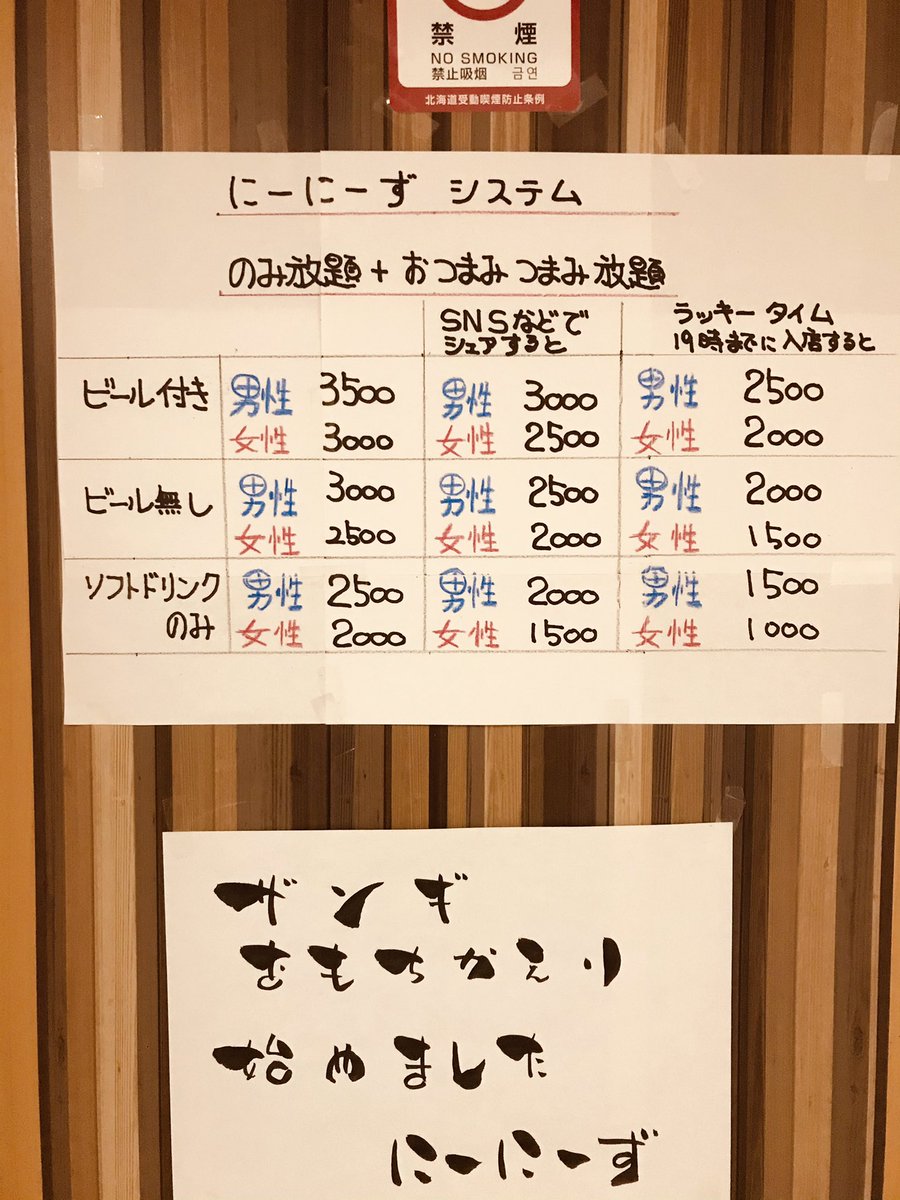 禁煙
NO SMOKING
禁止吸烟 금연
北海道受動喫煙防止条例
にーにーず システム
のみ放題+おつまみつまみ放題
SNSなどで
シェアすると
ラッキータイム
19時までに入店すると
ビール付き 男性 3500 男性 3000 男性 2500
女性 3000 女性 2500 女性 2000
ビール無し 男性 3000 男性 2500 男性 2000
女性 2500 女性 2000 女性 1500
ソフトドリンク 男性 2500 男性 2000 男性 1500
のみ 女性 2000 女性 1500 女性 1000
ザンギ
おもちかえり
始めました
にーにーず